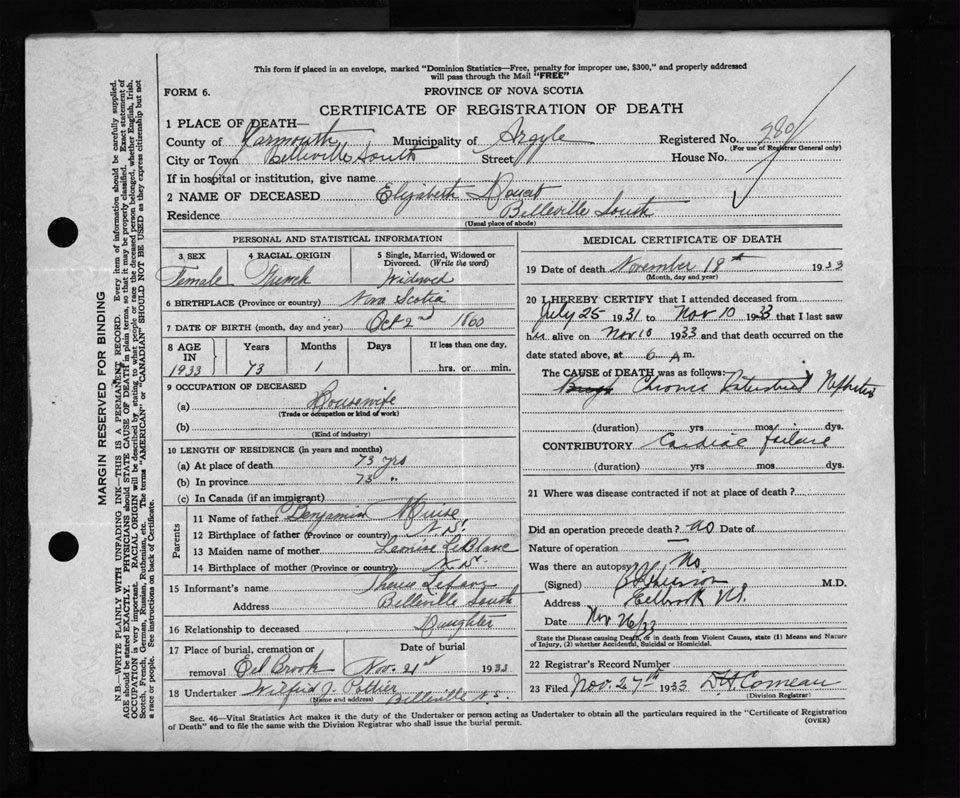 This form if placed in an envelope, marked "Dominion Statistics—Free, penalty for improper use, $300," and properly addressed
will pass through the Mail "FREE"
FORM 6.
PROVINCE OF NOVA SCOTIA
CERTIFICATE OF REGISTRATION OF DEATH
1 PLACE OF DEATH—
County of Yarmouth Municipality of Argyle Registered No. 980
(For use of Registrar General only)
City or Town Belleville South Street House No.
If in hospital or institution, give name
2 NAME OF DECEASED Elizabeth Doucet
Residence Belleville South
(Usual place of abode)
PERSONAL AND STATISTICAL INFORMATION
3 SEX 4 RACIAL ORIGIN 5 Single, Married, Widowed or
Divorced. (Write the word)
Female French Widowed
6 BIRTHPLACE (Province or country) Nova Scotia
7 DATE OF BIRTH (month, day and year) Oct 2nd 1860
8 AGE IN 1933 Years 73 Months 1 Days If less than one day,
hrs. or min.
9 OCCUPATION OF DECEASED
(a) Housewife
(Trade or occupation or kind of work)
(b)
(Kind of industry)
10 LENGTH OF RESIDENCE (in years and months)
(a) At place of death 73 yrs
(b) In province 73 "
(c) In Canada (if an immigrant)
Parents
11 Name of father Benjamin Muise
12 Birthplace of father (Province or country) N.S.
13 Maiden name of mother LeBlanc
14 Birthplace of mother (Province or country) N.S.
15 Informant's name
Address Belleville South
16 Relationship to deceased Daughter
17 Place of burial, cremation or Date of burial
removal Eel Brook Nov. 21st 1933
18 Undertaker Wilfrid J. Pottier
(Name and address) Belleville N.S.
MEDICAL CERTIFICATE OF DEATH
19 Date of death November 18th 1933
(Month, day and year)
20 I HEREBY CERTIFY that I attended deceased from
July 25 1931 to Nov 10 1933 that I last saw
her alive on Nov 10 1933 and that death occurred on the
date stated above, at 6 A m.
The CAUSE of DEATH was as follows:
Chronic Interstitial Nephritis
(duration) yrs mos dys.
CONTRIBUTORY Cardiac failure
(duration) yrs mos dys.
21 Where was disease contracted if not at place of death?
Did an operation precede death? no Date of
Nature of operation —
Was there an autopsy? No
(Signed) M.D.
Address Eelbrook N.S.
Date Nov 26/33
State the Disease causing Death, or in death from Violent Causes, state (1) Means and Nature
of Injury, (2) whether Accidental, Suicidal or Homicidal.
22 Registrar's Record Number
23 Filed Nov. 27th 1933 Comeau
(Division Registrar)
Sec. 46—Vital Statistics Act makes it the duty of the Undertaker or person acting as Undertaker to obtain all the particulars required in the "Certificate of Registration
of Death" and to file the same with the Division Registrar who shall issue the burial permit.
(OVER)
MARGIN RESERVED FOR BINDING
N.B.—WRITE PLAINLY WITH UNFADING INK—THIS IS A PERMANENT RECORD. Every item of information should be carefully supplied.
AGE should be stated EXACTLY. PHYSICIANS should STATE CAUSE OF DEATH in plain terms, so that it may be properly classified. Exact statement of
OCCUPATION is very important. RACIAL ORIGIN will be described by stating to what people or race the deceased person belonged, whether English, Irish,
Scotch, French, German, Russian, Ruthenian, etc. The terms "AMERICAN" or "CANADIAN" SHOULD NOT BE USED as they express citizenship but not
a race or people. See instructions on back of Certificate.